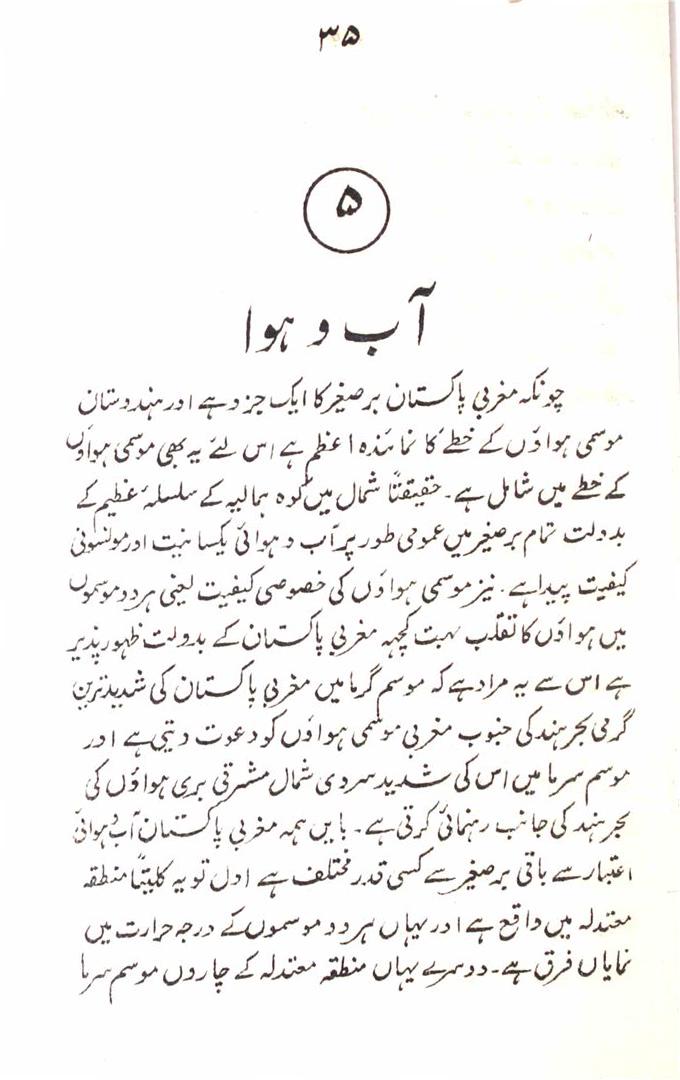 ۳۵
۵
آب و ہوا
چونکہ مغربی پاکستان برصغیر کا ایک جزو ہے اور ہندوستان
موسمی ہواؤں کے خطے کا نمائندہ اعظم ہے اس لئے یہ بھی موسمی ہواؤں
کے خطے میں شامل ہے۔ حقیقتاً شمال میں کوہ ہمالیہ کے سلسلۂ عظیم کے
بدولت تمام برصغیر میں عمومی طور پر آب و ہوائی یکسانیت اور مونسونی
کیفیت پیدا ہے۔ نیز موسمی ہواؤں کی خصوصی کیفیت یعنی ہر دو موسموں
میں ہواؤں کا تقلب بہت کچھہ مغربی پاکستان کے بدولت ظہور پذیر
ہے اس سے یہ مراد ہے کہ موسم گرما میں مغربی پاکستان کی شدید ترین
گرمی بحر ہند کی جنوب مغربی موسمی ہواؤں کو دعوت دیتی ہے اور
موسم سرما میں اس کی شدید سردی شمال مشرقی بری ہواؤں کی
بحر ہند کی جانب رہنمائی کرتی ہے۔ بایں ہمہ مغربی پاکستان آب و ہوائی
اعتبار سے باقی برصغیر سے کسی قدر مختلف ہے اول تو یہ کلیتاً منطقہ
معتدلہ میں واقع ہے اور یہاں ہر دو موسموں کے درجہ حرارت میں
نمایاں فرق ہے۔ دوسرے یہاں منطقہ معتدلہ کے چاروں موسم سرما